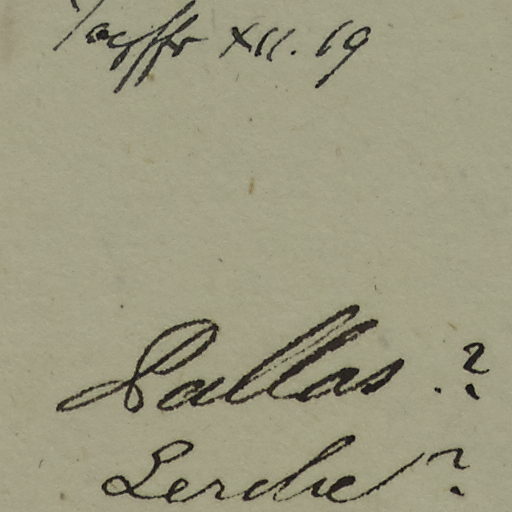 XII. 19
Pallas. ?
Lerche ?